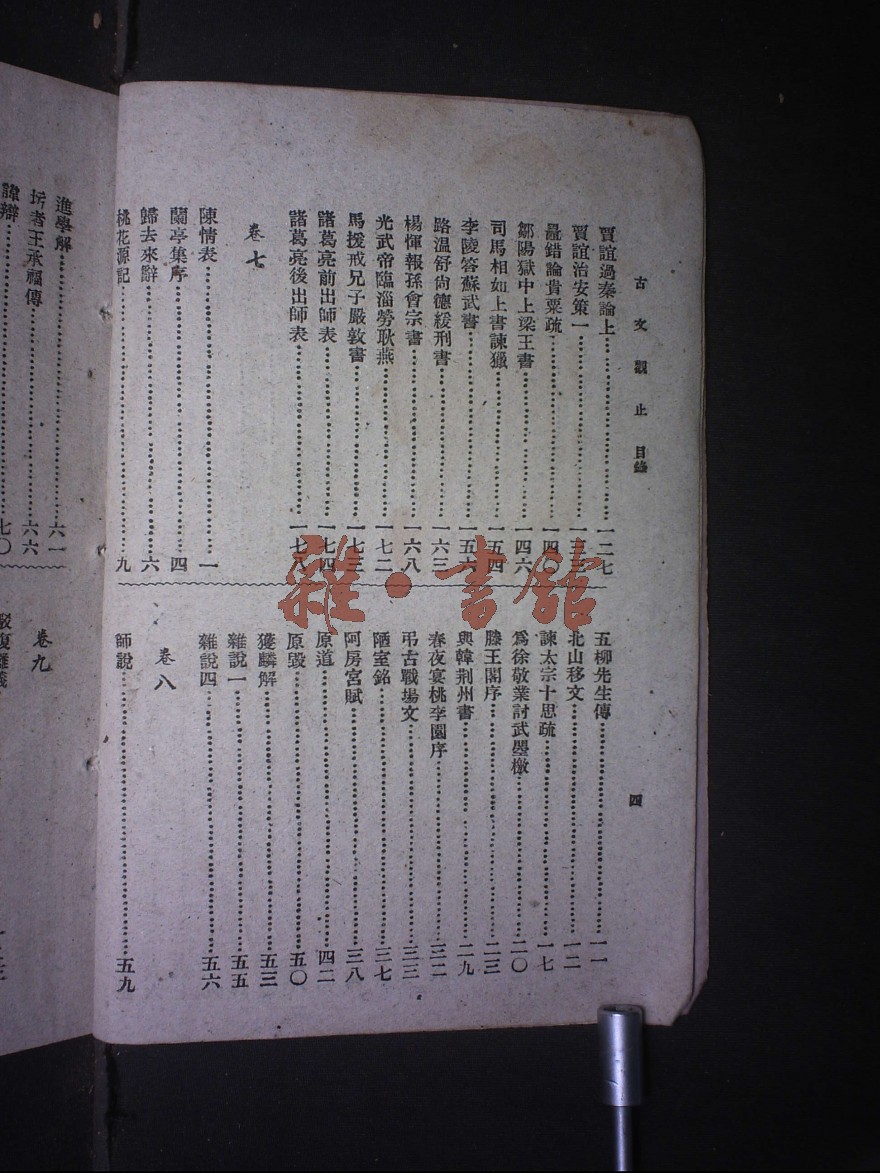 古文觀止 目錄
四
賈誼過秦論上……一二七
賈誼治安策一……一三三
鼂錯論貴粟疏……一四〇
鄒陽獄中上梁王書……一四六
司馬相如上書諫獵……一五四
李陵答蘇武書……一五六
路溫舒尚德緩刑書……一六三
楊惲報孫會宗書……一六八
光武帝臨淄勞耿弇……一七二
馬援戒兄子嚴敦書……一七三
諸葛亮前出師表……一七四
諸葛亮後出師表……一七八
卷七
陳情表……一
蘭亭集序……四
歸去來辭……六
桃花源記……九
五柳先生傳……一一
北山移文……一二
諫太宗十思疏……一七
爲徐敬業討武曌檄……二〇
滕王閣序……二三
與韓荆州書……二九
春夜宴桃李園序……三二
弔古戰場文……三三
陋室銘……三七
阿房宮賦……三八
原道……四二
原毀……五〇
獲麟解……五三
雜說一……五五
雜說四……五六
卷八
師說……五九
進學解……六一
圬者王承福傳……六六
諱辯……七〇
卷九
雜·書館